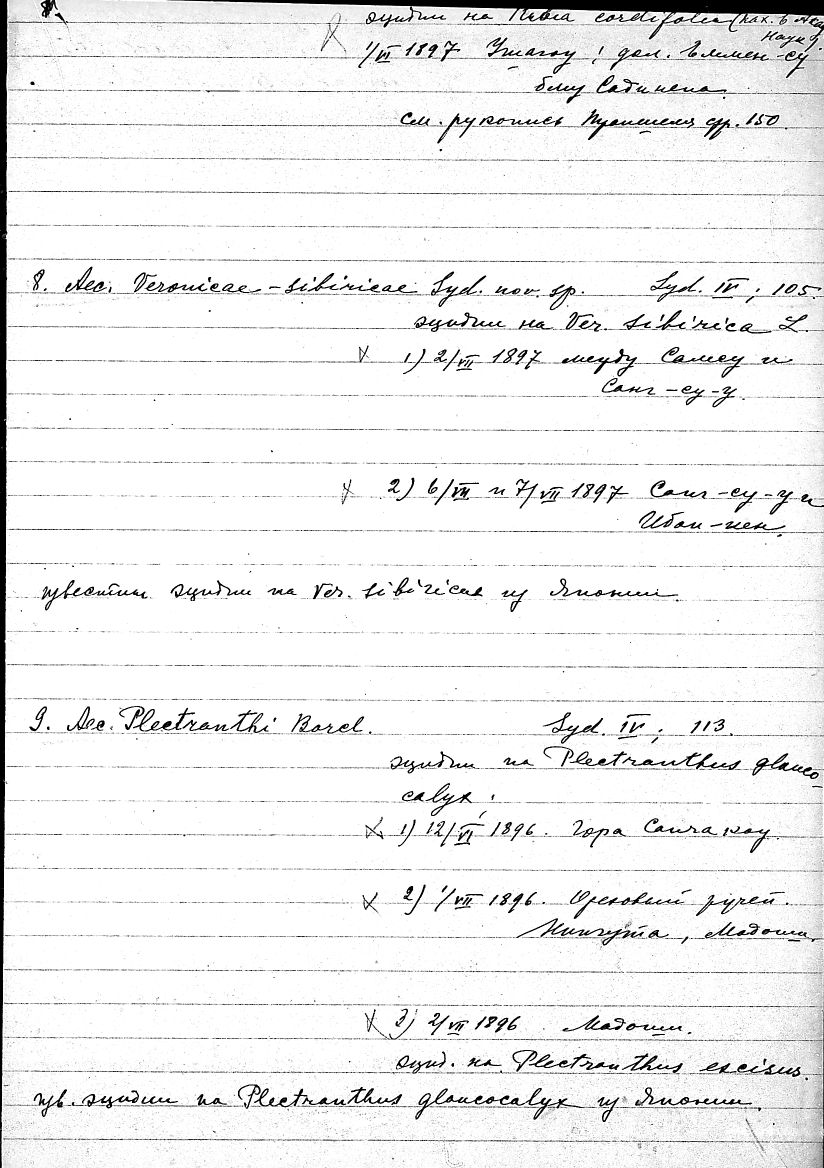 эцидии на Rubia cordifolia (нах. в Акад.
Наук)
1/VI 1897 дол.
близ
см. рукопись стр. 150.
8. Aec. Veronicae-sibiricae Syd. nov. sp. Syd. IV; 105.
эцидии на Ver. sibirica L.
1) 2/VII 1897 между Самсу и
Санг-су-у.
2) 6/VII и 7/VII 1897 Санг-су-у и
известны эцидии на Ver. sibiricae из Японии.
9. Aec. Plectranthi Barcl. Syd. IV; 113.
эцидии на Plectranthus glauco-
calyx:
1) 12/VI 1896. Гора
2) 1/VII 1896. Ореховый ручей.
Нингута, Модоши.
3) 2/VII 1896 Модоши.
эцид. на Plectranthus excisus.
изв. эцидии на Plectranthus glaucocalyx из Японии.